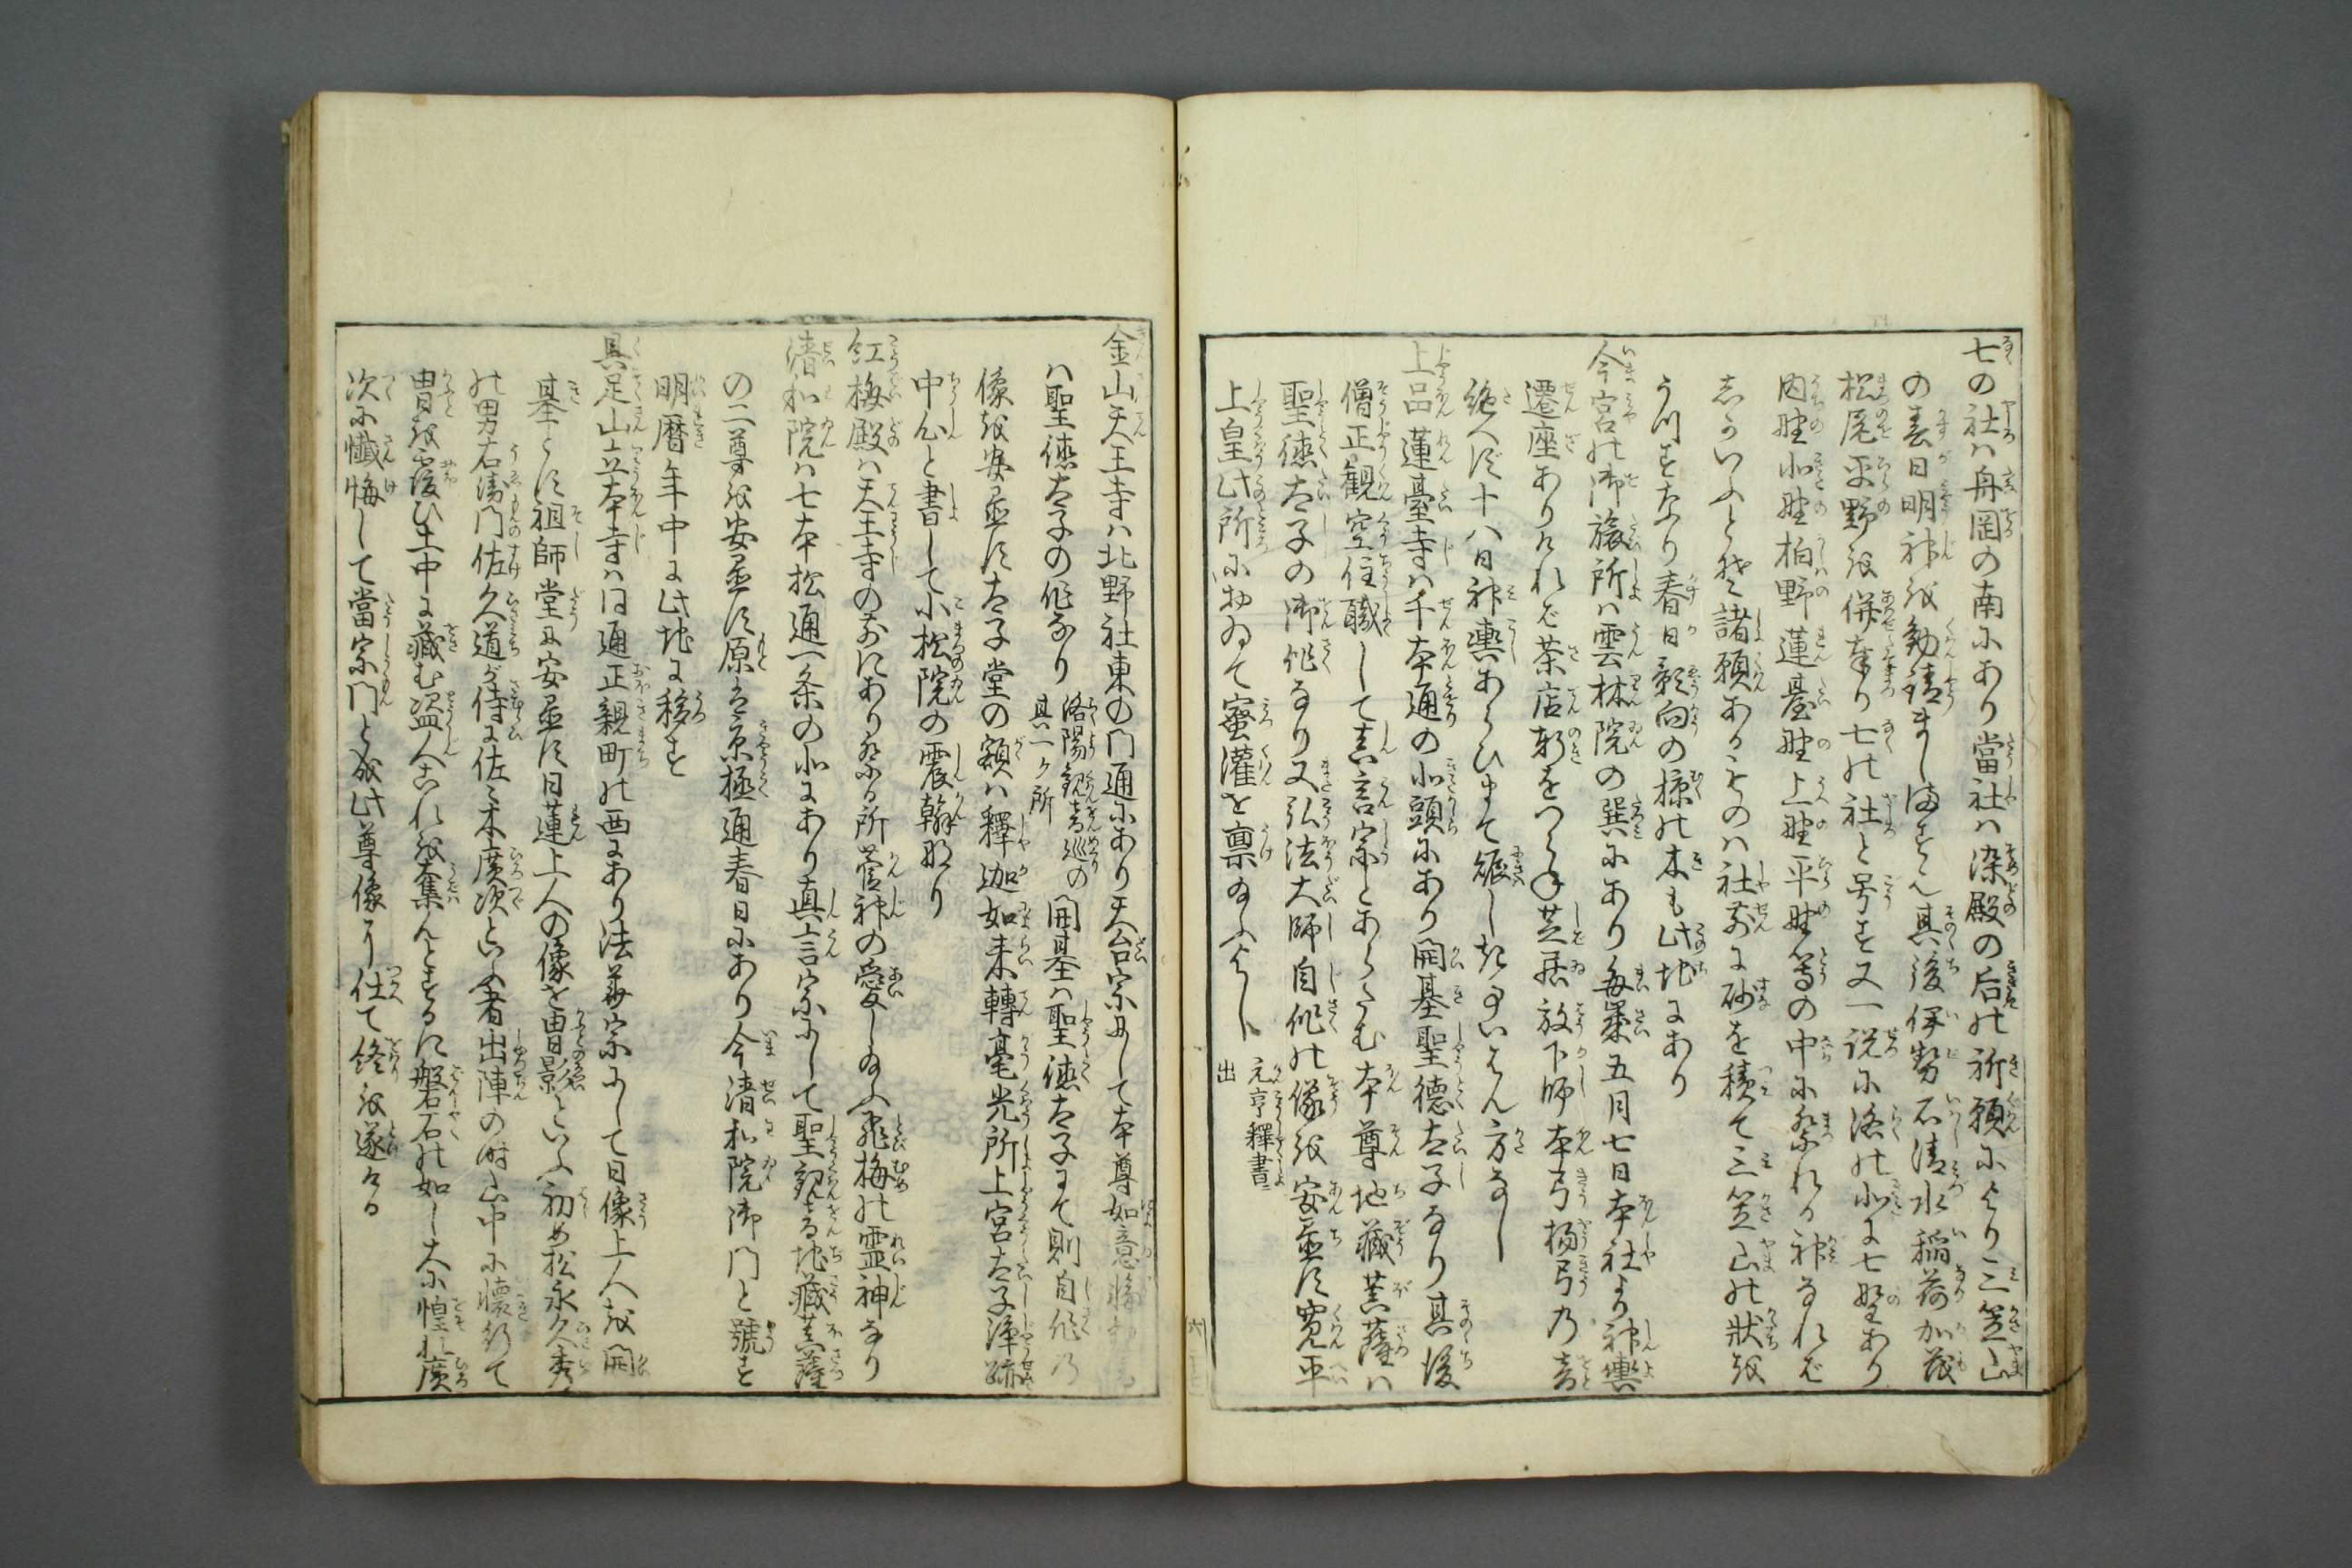 七の社は舟岡の南にあり當社は染殿の后の祈願により三笠山
の春日明神を勧請まします其後伊勢石清水稲荷加茂
松尾平野を併奉り七の社と号す又一説に洛の北に七野あり
内野北野柏野蓮臺野上野平野等の中に祭れる神なれば
しかいふとぞ諸願あるものは社前に砂を積て三笠山の状を
うつすなり春日影向の椋の木も此地にあり
今宮の御旅所は雲林院の巽にあり毎歳五月七日本社より神輿
遷座ありければ茶店軒をつらね芝居放下師本弓楊弓の音
絶へず十八日神輿あらひまで賑しきこといはん方なし
上品蓮臺寺は千本通の北頭にあり開基聖徳太子なり其後
僧正観空住職して真言宗とあらたむ本尊地藏菩薩は
聖徳太子の御作なり又弘法大師自作の像を安置す寛平
上皇此所におゐて蜜灌を禀給ふよし 元亨釋書ニ出
金山天王寺は北野社東の門通にあり天台宗にして本尊如意輪
は聖徳太子の作なり 洛陽観音巡の其一ケ所 開基は聖徳太子にて則自作の
像を安置す太子堂の額は釋迦如来轉毫光所上宮太子浄跡
中心と書して小松院の震翰なり
紅梅殿は天王寺の前にあり祭る所菅神の愛し給ふ飛梅の霊神なり
清和院は七本松通一条の北にあり真言宗にして聖観音地藏菩薩
の二尊を安置す原は京極通春日にあり今清和院御門と號す
明暦年中に此地に移す
具足山立本寺は同通正親町の西にあり法華宗にして日像上人を開
基とす祖師堂に安置す日蓮上人の像を冑影といふ初め松永久秀
の男右衛門佐久道が侍に佐々木廣次といふ者出陣の時山中に懐行て
冑を覆ひ土中に藏む盗人これを奪んとするに磐石の如し大に惶れ廣
次に懺悔して當宗門と成此尊像に仕て終を遂ける